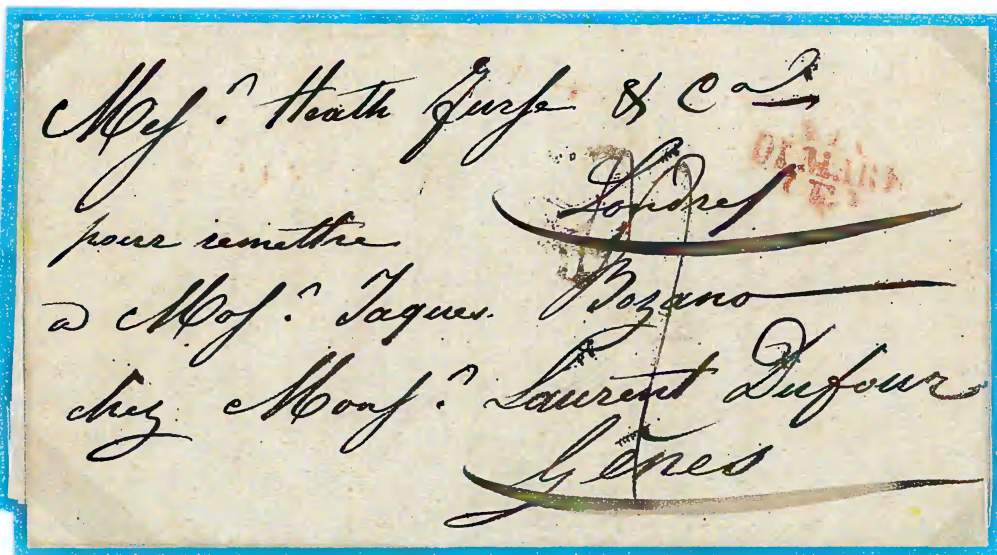 Mess.ˢ Heath Furse & Co
Londres
VIA
DI MARE
pour remettre
a Mos.ʳ Jaques Bozano
chez Mons.ʳ Laurent Dufour
Gênes